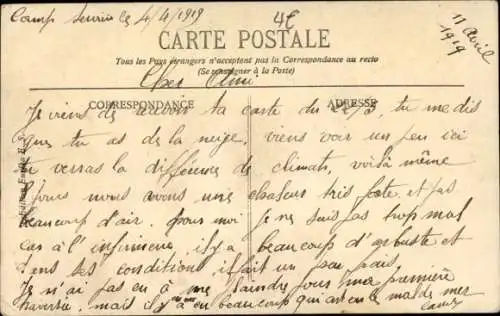 Camp Servière le 4/4/1919
4E
11 avril 1919
CARTE POSTALE
Tous les Pays étrangers n'acceptent pas la Correspondance au recto
(Se renseigner à la Poste)
Cher Ami
CORRESPONDANCE
ADRESSE
Je viens de recevoir ta carte du 22/3, tu me dis
que tu as de la neige, viens voir un peu ici
tu verras la différence de climats, voilà même
jours nous avons une chaleur très forte et pas
beaucoup d'air. Pour moi je ne suis pas trop mal
car à l'infirmerie il y a beaucoup d'arbuste et
dans ses conditions il fait un peu frais
Je n'ai pas eu à me plaindre pour mer première
traversée, mais il y a eu beaucoup qui ont eu le mal de mer